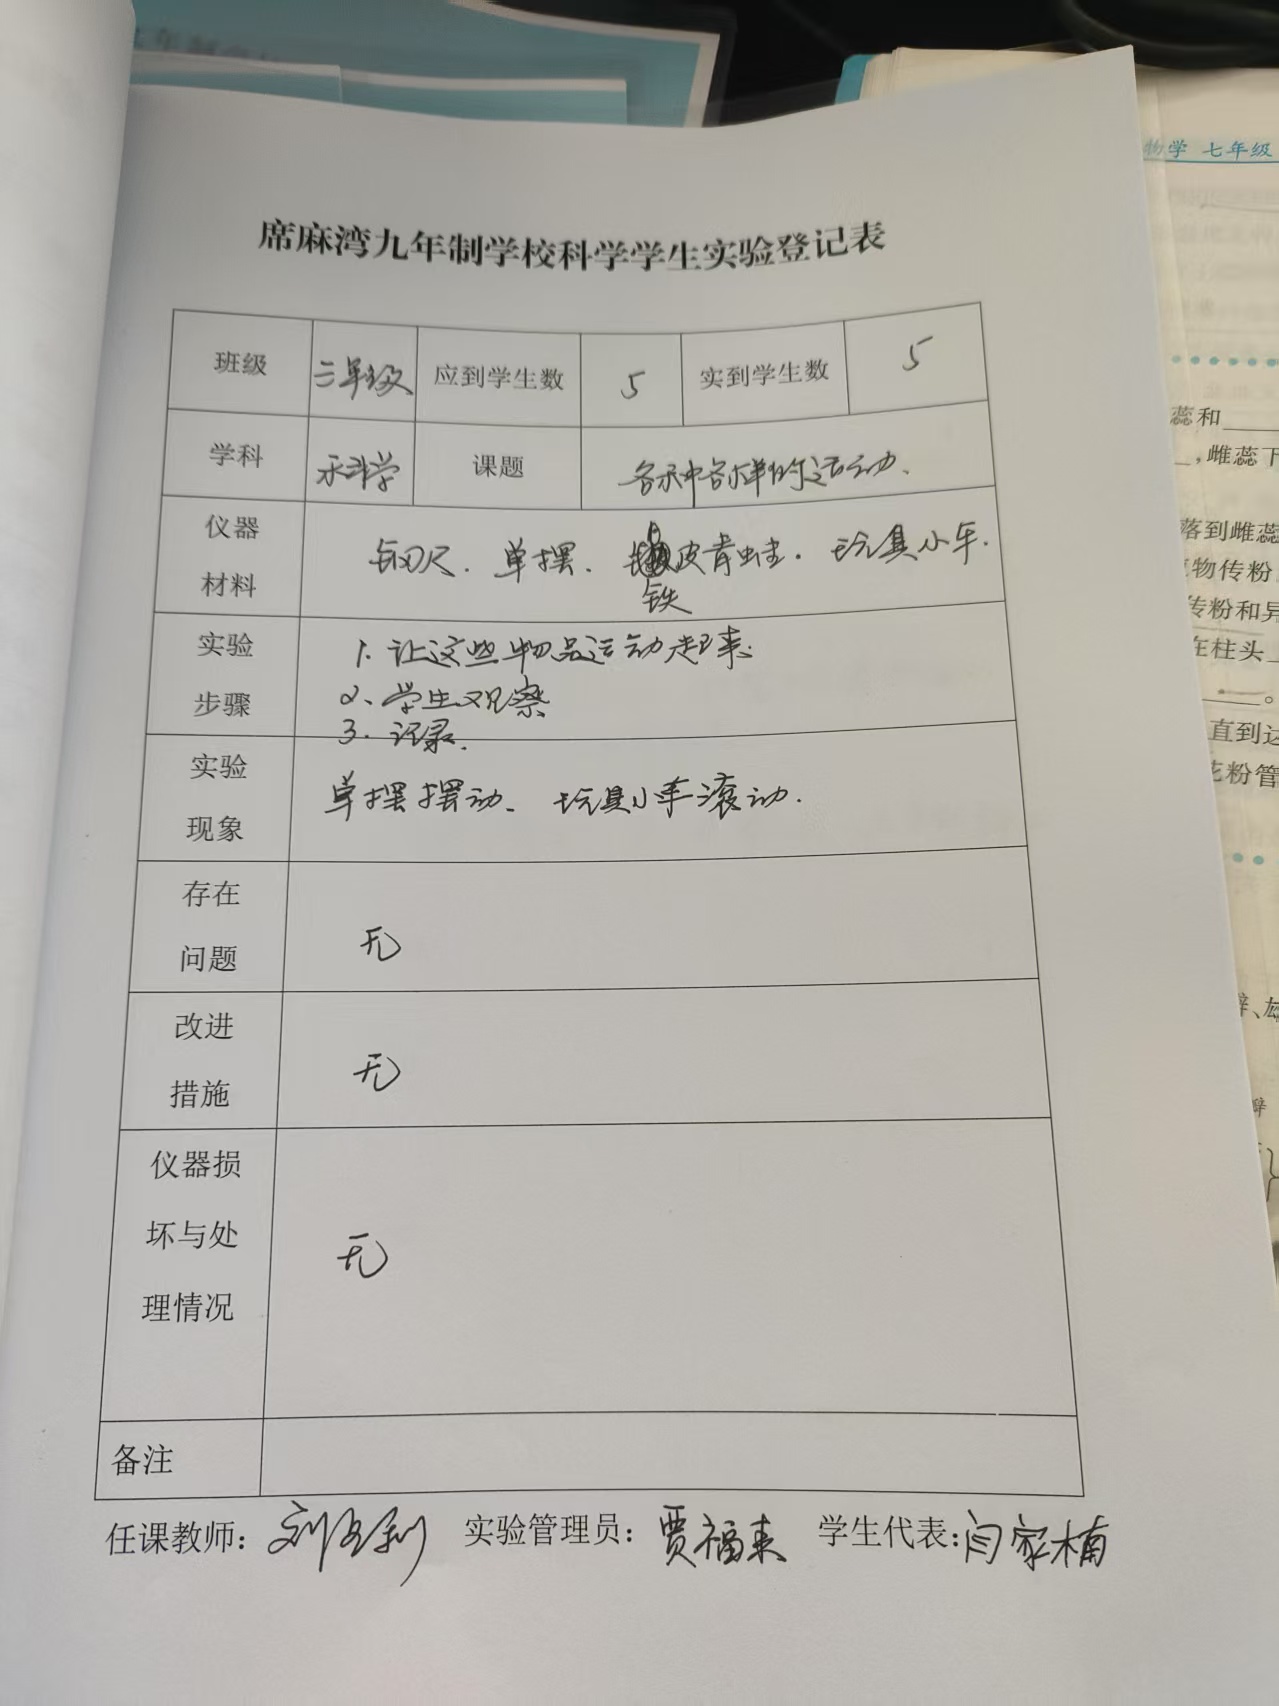 物学 七年级
席麻湾九年制学校科学学生实验登记表
班级 三年级 应到学生数 5 实到学生数 5
学科 科学 课题 各种各样的运动、
仪器
材料
钢尺、单摆、铁皮青蛙、玩具小车.
实验
步骤
1. 让这些物品运动起来
2、学生观察
3. 记录.
实验
现象
单摆摆动、玩具小车滚动.
存在
问题
无
改进
措施
无
仪器损
坏与处
理情况
无
备注
任课教师: 实验管理员: 贾福来 学生代表: 闫家楠
蕊和
,雌蕊下
落到雌蕊
物传粉
传粉和异
在柱头
直到达
花粉管